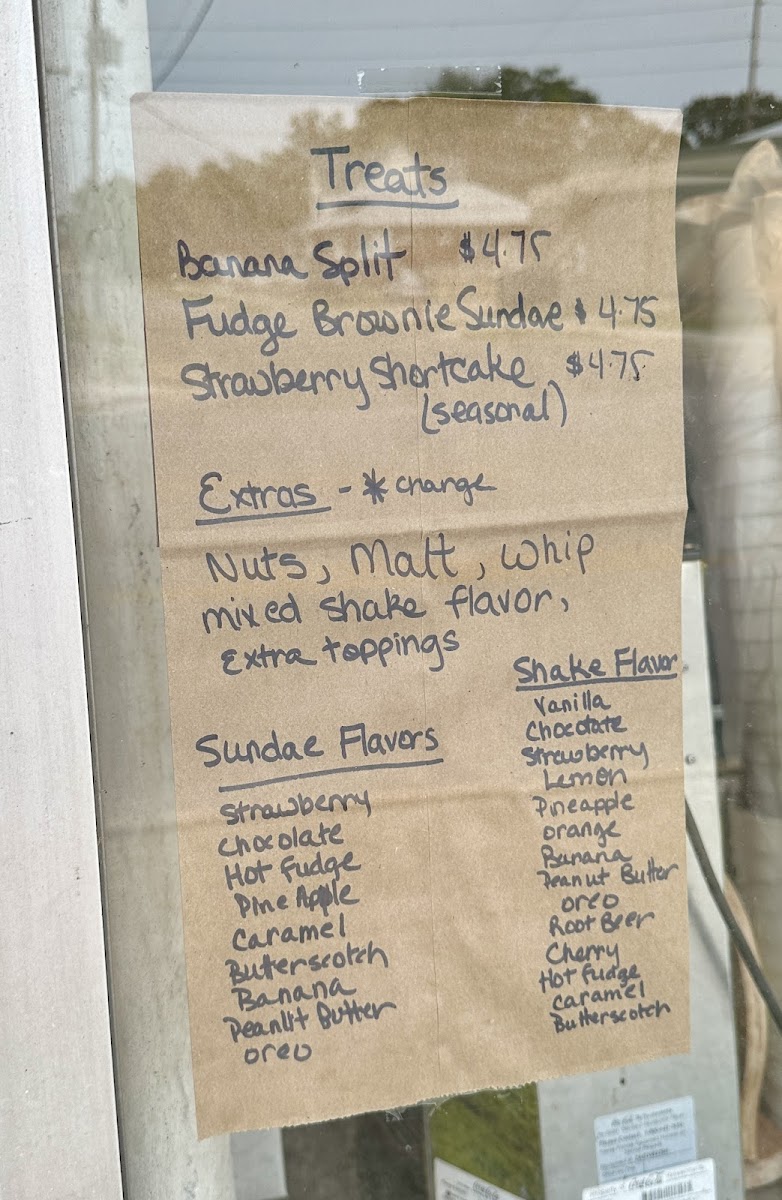 Treats
Banana Split $4.75
Fudge Brownie Sundae $4.75
Strawberry Shortcake $4.75
(seasonal)
Extras - * change
Nuts, Malt, whip
mixed shake flavor,
Extra toppings
Sundae Flavors
Strawberry
Chocolate
Hot Fudge
Pine Apple
Caramel
Butterscotch
Banana
Peanut Butter
oreo
Shake Flavor
Vanilla
Chocolate
Strawberry
Lemon
Pineapple
orange
Banana
Peanut Butter
oreo
Root Beer
Cherry
Hot fudge
caramel
Butterscotch